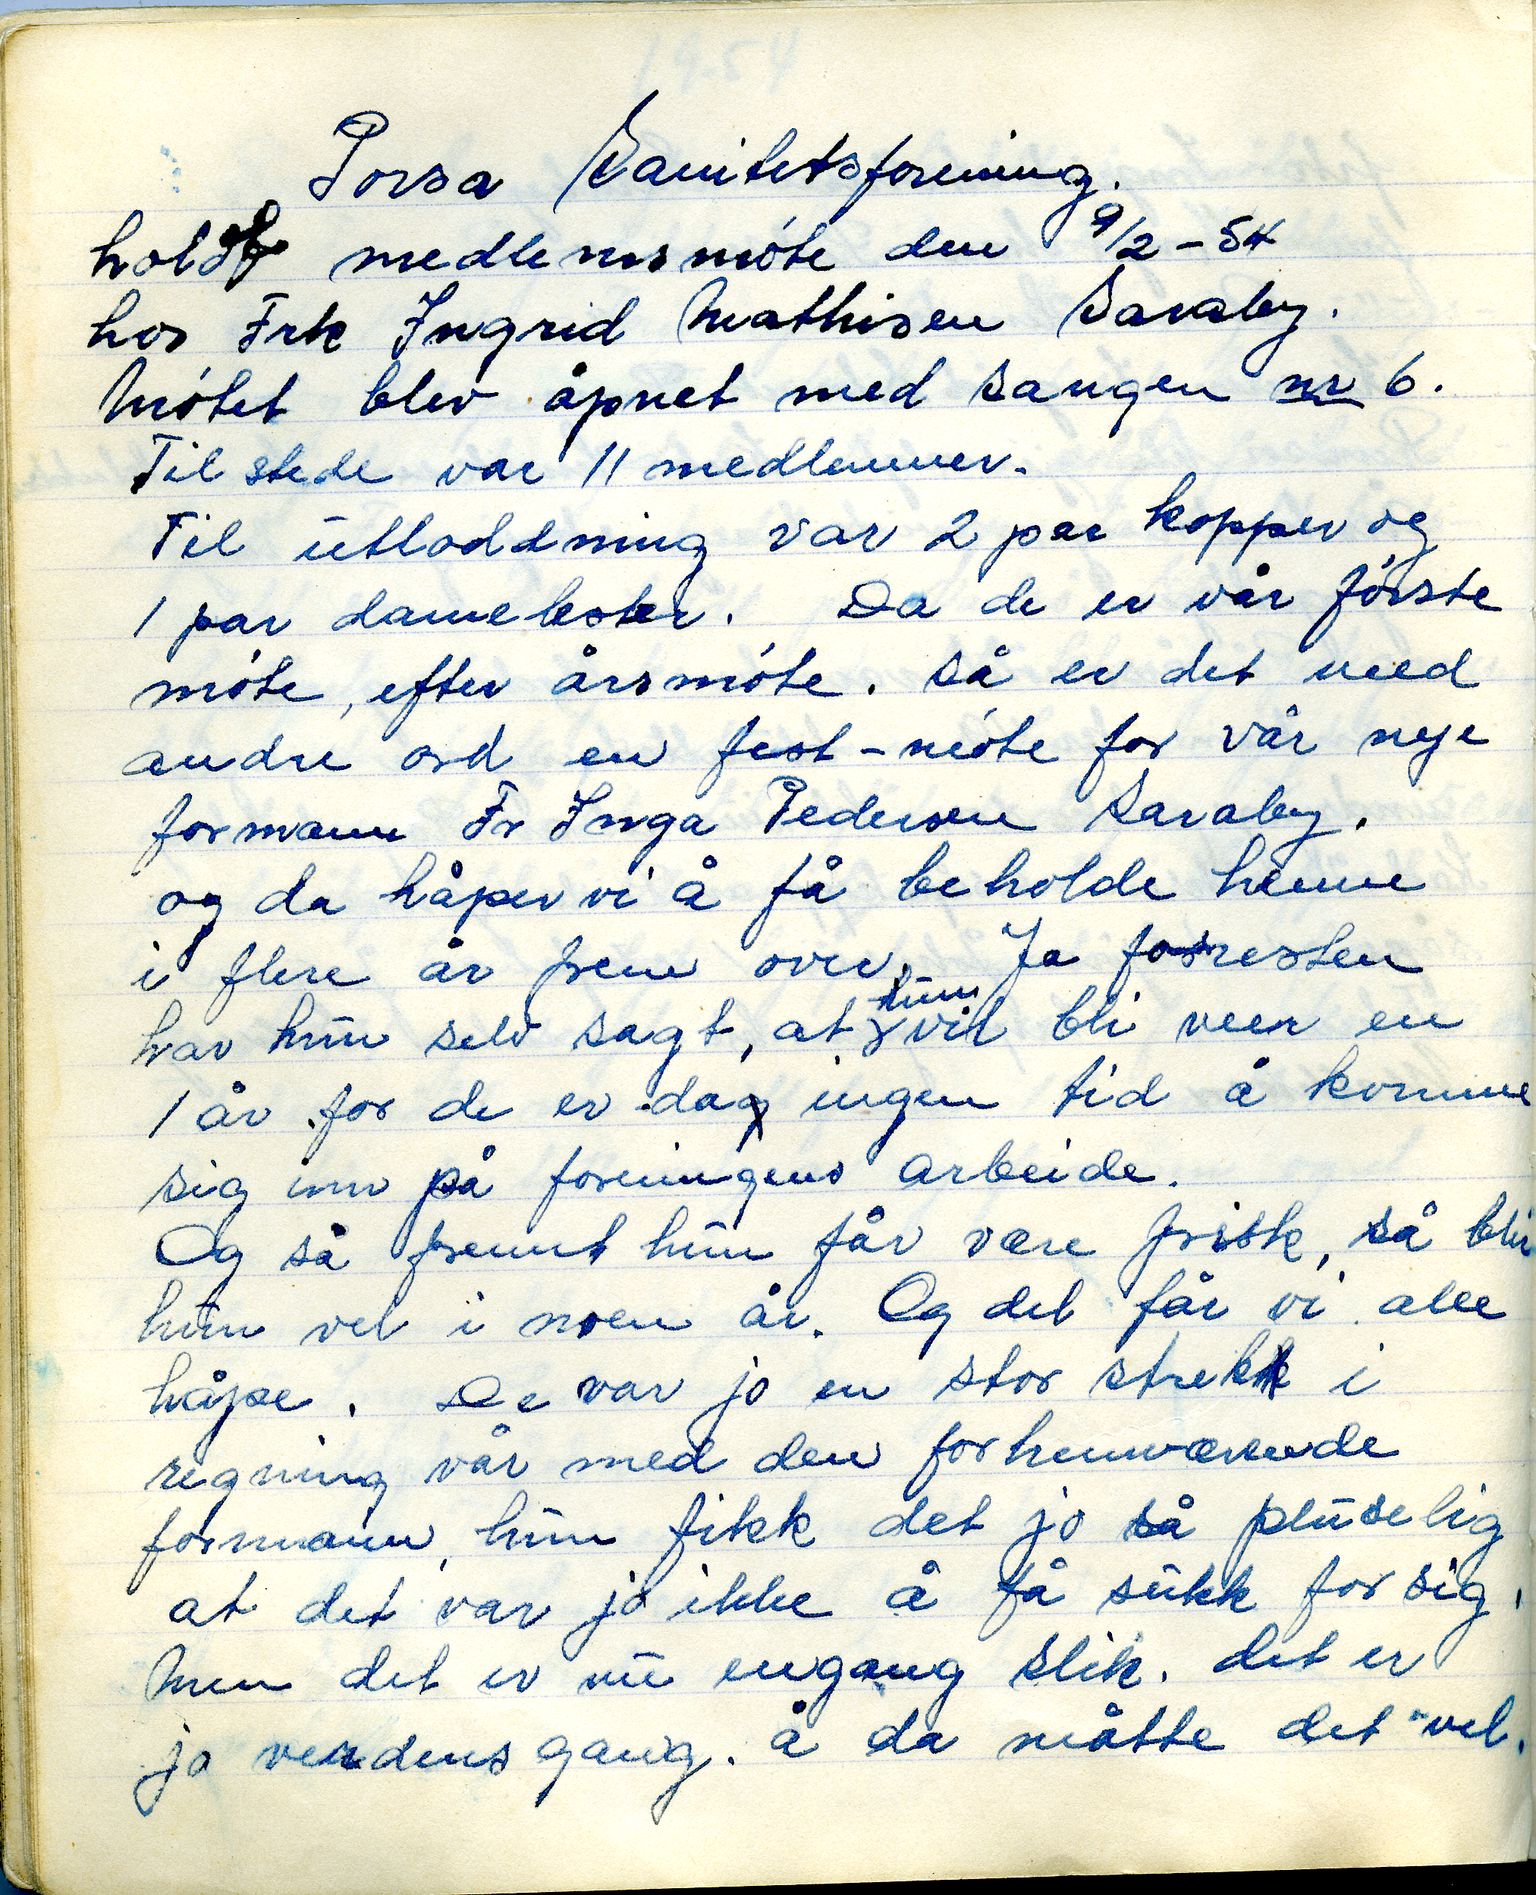 Porsa Sanitetsforening.
holdt medlemsmöte den 9/2-54
hos Frk Ingrid Mathisen Saraby.
Mötet blev åpnet med sangen nr 6.
Til stede var 11 medlemmer.
Til utloddning var 2 par kopper og
1 par damelester. Da de er vår förste
möte, efter årsmöte. så er det med
andre ord en fest-möte for vår nye
formann Fr Inga Pedersen Saraby.
og da håper vi å få beholde henne
i flere år frem over. Ja forresten
har hun selv sagt, at hun vil bli meer en
1 år for de er da ingen tid å komme
sig inn på foreningens arbeide.
Og så fremt hun får være frisk, så blir
hun vel i noen år. Og det får vi alle
håpe. De var jo en stor strekk i
regning vår med den forhenværende
formann, hun fikk det jo så pluselig
at det var jo ikke å få sukk for sig.
Men det er nu engang slik. det er
jo verdens gang. å da måtte det vel.